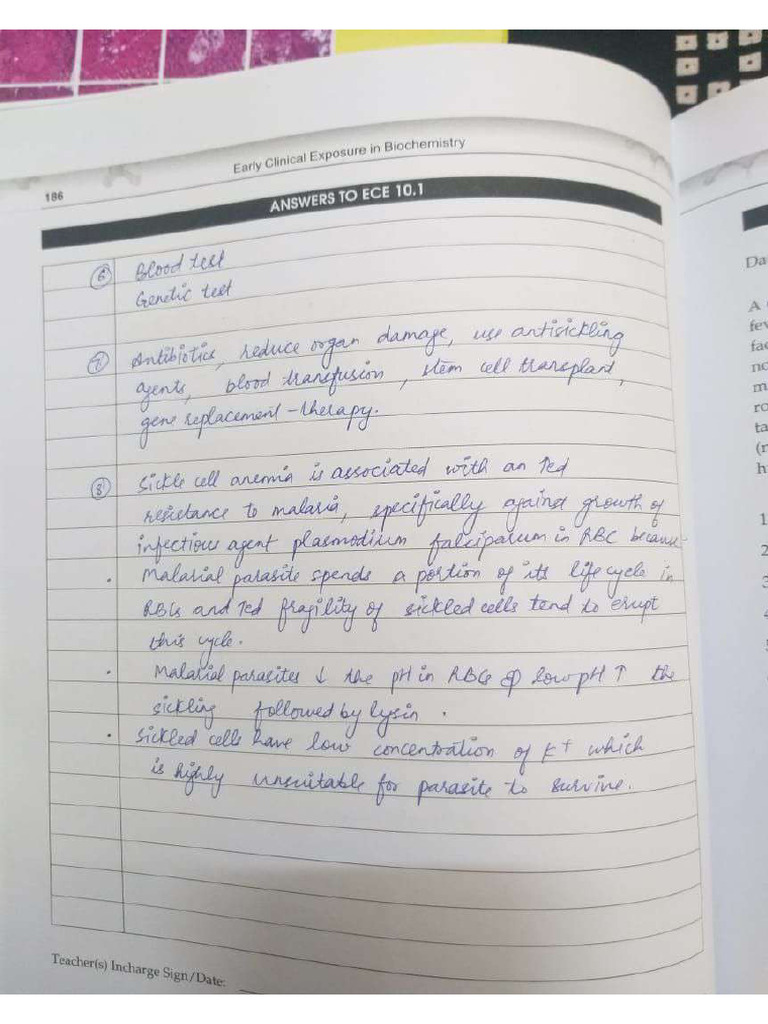 Early Clinical Exposure in Biochemistry
186
ANSWERS TO ECE 10.1
⑥ Blood test
Genetic test
⑦ Antibiotics, reduce organ damage, use antisickling
agents, blood transfusion, stem cell transplant,
gene replacement-therapy.
⑧ Sickle cell anemia is associated with an ↑ed
resistance to malaria, specifically against growth of
infectious agent plasmodium falciparum in RBC because-
. Malarial parasite spends a portion of its life cycle in
RBCs and ↑ed fragility of sickled cells tend to erupt
this cycle.
. Malarial parasites ↓ the pH in RBCs & low pH ↑ the
sickling followed by lysin.
. Sickled cells have low concentration of K+ which
is highly unsuitable for parasite to survive.
Teacher(s) Incharge Sign/Date:
Da
A
fev
fac
no
m
ro
ta
(r
h
1
2
3
4